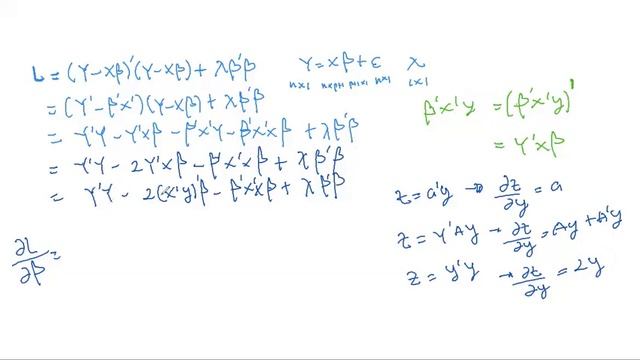 L = (Y-Xβ)'(Y-Xβ) + λβ'β
= (Y'-β'X')(Y-Xβ) + λβ'β
= Y'Y - Y'Xβ - β'X'Y - β'X'Xβ + λβ'β
= Y'Y - 2Y'Xβ - β'X'Xβ + λβ'β
= Y'Y - 2(X'Y)'β - β'X'Xβ + λβ'β
∂L/∂β =
Y = Xβ + ε λ
n×1 n×p+1 p+1×1 n×1 1×1
β'X'Y = (β'X'Y)'
= Y'Xβ
z = a'y → ∂z/∂y = a
z = Y'AY → ∂z/∂y = Ay + A'y
z = y'y → ∂z/∂y = 2y